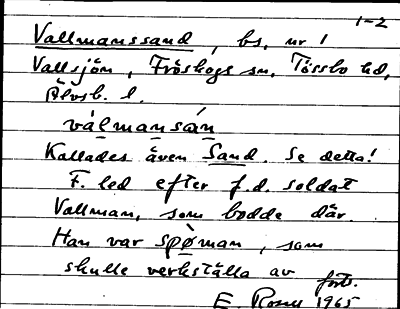 1-2
Vallmanssand, bs, nr 1
Vallsjön, Fröskogs sn, Tössbo hd,
Älvsb. l.
vàlmansán
Kallades även Sand. Se detta!
F. led efter f.d. soldat
Vallman, som bodde där.
Han var spø̀man, som
skulle verkställa av
forts.
E. Rosell 1965